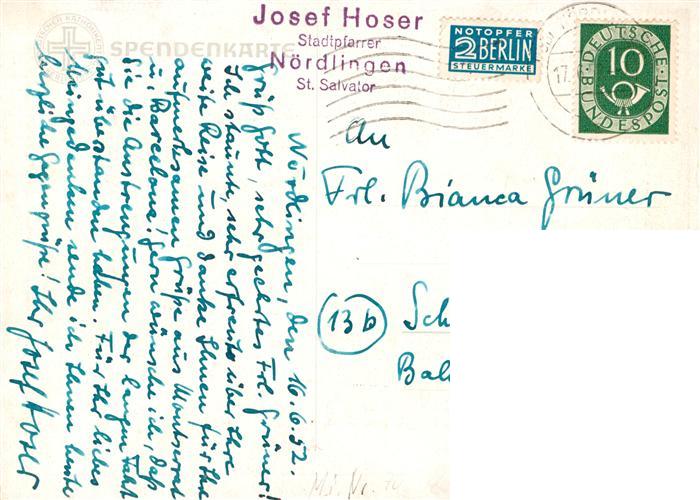 SPENDENKARTE
Josef Hoser
Stadtpfarrer
Nördlingen
St. Salvator
NOTOPFER
2 BERLIN
STEUERMARKE
17.
DEUTSCHE
10
BUNDESPOST
An
Frl. Bianca Grüner
13b
Sch
Bal
Nördlingen, den 16.6.52.
Grüß Gott, sehr geehrtes Frl. Grüner!
Ich staunte, sehr erfreut über Ihre
weite Reise und danke Ihnen für Ihr
aufmerksamen Grüße aus Montserrat
u. Barcelona! Gern wünsche ich, daß
Sie die Anstrengungen der langen Fahrt
gut überstanden haben. Für Ihr liebes
Meingedenken sende ich Ihnen heute
herzliche Gegengrüße! Ihr Josef Hoser